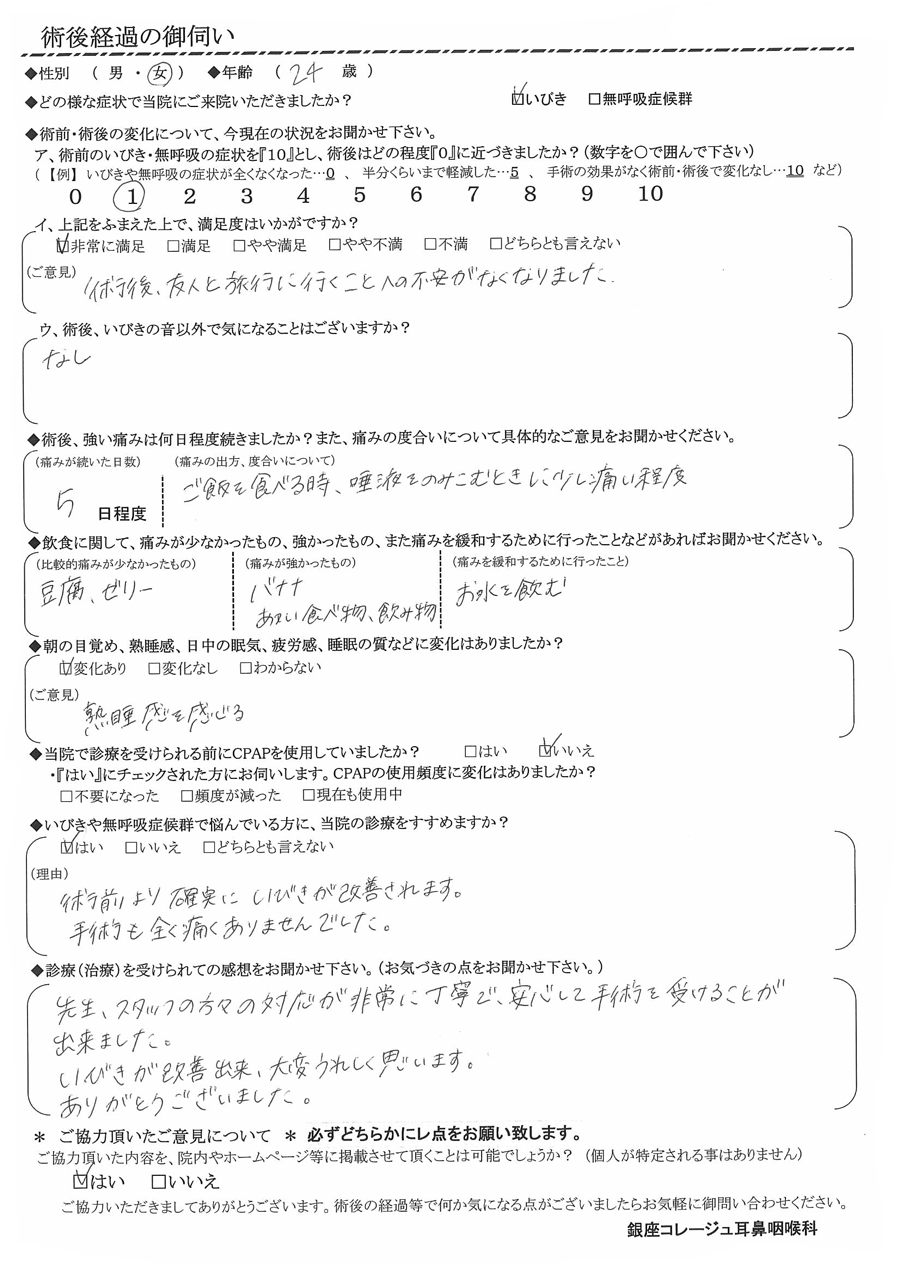 術後経過の御伺い
◆性別 （ 男 ・ 女 ） ◆年齢 （ 24 歳 ）
◆どの様な症状で当院にご来院いただきましたか？ ☑いびき □無呼吸症候群
◆術前・術後の変化について、今現在の状況をお聞かせ下さい。
ア、術前のいびき・無呼吸の症状を『10』とし、術後はどの程度『0』に近づきましたか？（数字を〇で囲んで下さい）
（ 【例】 いびきや無呼吸の症状が全くなくなった…0 、 半分くらいまで軽減した…5 、 手術の効果がなく術前・術後で変化なし…10 など）
0 1 2 3 4 5 6 7 8 9 10
イ、上記をふまえた上で、満足度はいかがですか？
☑非常に満足 □満足 □やや満足 □やや不満 □不満 □どちらとも言えない
（ご意見） 術後、友人と旅行に行くことへの不安がなくなりました.
ウ、術後、いびきの音以外で気になることはございますか？
なし
◆術後、強い痛みは何日程度続きましたか？また、痛みの度合いについて具体的なご意見をお聞かせください。
（痛みが続いた日数） （痛みの出方、度合いについて）
5 日程度 ご飯を食べる時、唾液をのみこむときに少し痛い程度
◆飲食に関して、痛みが少なかったもの、強かったもの、また痛みを緩和するために行ったことなどがあればお聞かせください。
（比較的痛みが少なかったもの） （痛みが強かったもの） （痛みを緩和するために行ったこと）
豆腐、ゼリー バナナ お水を飲む
あまい食べ物、飲み物
◆朝の目覚め、熟睡感、日中の眠気、疲労感、睡眠の質などに変化はありましたか？
☑変化あり □変化なし □わからない
（ご意見）
熟睡感を感じる
◆当院で診療を受けられる前にCPAPを使用していましたか？ □はい ☑いいえ
・『はい』にチェックされた方にお伺いします。CPAPの使用頻度に変化はありましたか？
□不要になった □頻度が減った □現在も使用中
◆いびきや無呼吸症候群で悩んでいる方に、当院の診療をすすめますか？
☑はい □いいえ □どちらとも言えない
（理由）
術前より確実にいびきが改善されます。
手術も全く痛くありませんでした。
◆診療（治療）を受けられての感想をお聞かせ下さい。（お気づきの点をお聞かせ下さい。）
先生、スタッフの方々の対応が非常に丁寧で、安心して手術を受けることが
出来ました。
いびきが改善出来、大変うれしく思います。
ありがとうございました。
＊ ご協力頂いたご意見について ＊ 必ずどちらかにレ点をお願い致します。
ご協力頂いた内容を、院内やホームページ等に掲載させて頂くことは可能でしょうか？ （個人が特定される事はありません）
☑はい □いいえ
ご協力いただきましてありがとうございます。術後の経過等で何か気になる点がございましたらお気軽に御問い合わせください。
銀座コレージュ耳鼻咽喉科